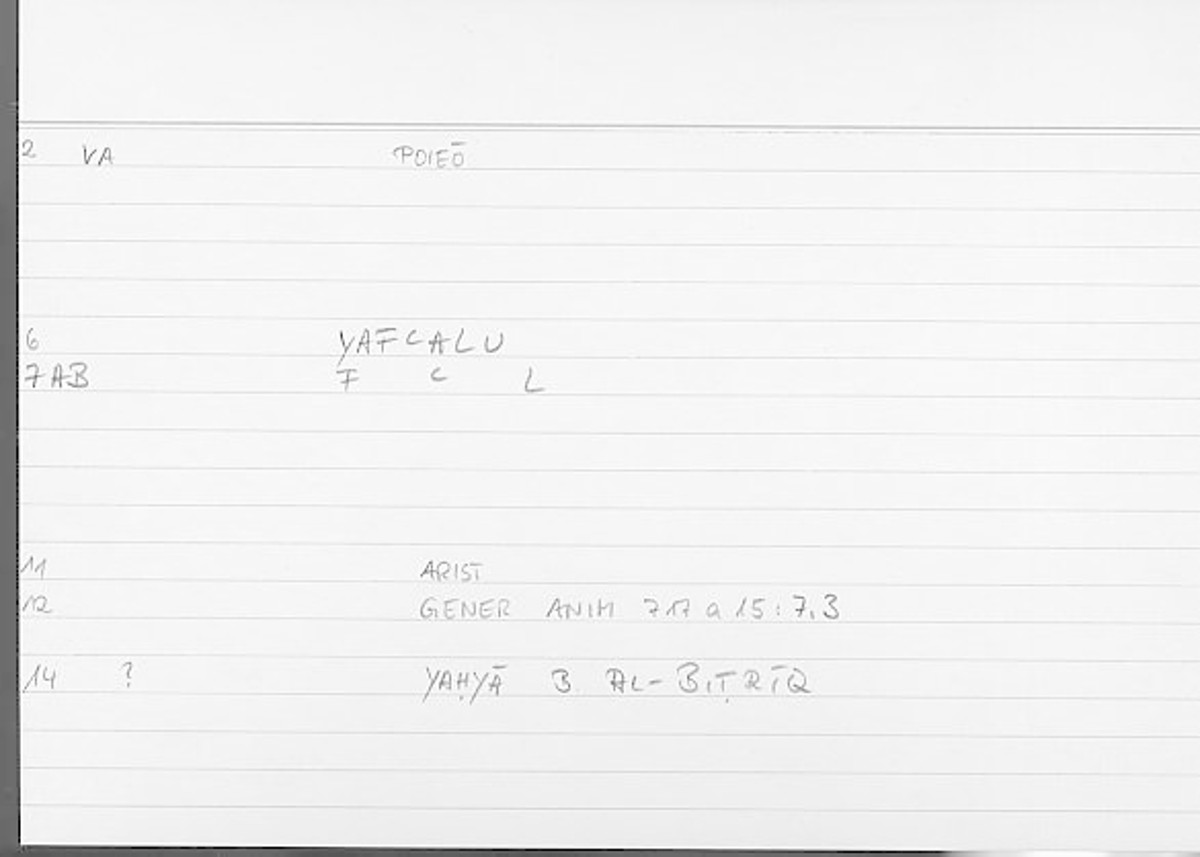 2 VA POIEŌ
6 YAFCALU
7AB F C L
11 ARIST
12 GENER ANIM 717 a 15 : 7.3
14 ? YAḤYĀ B. AL-BIṬRĪQ